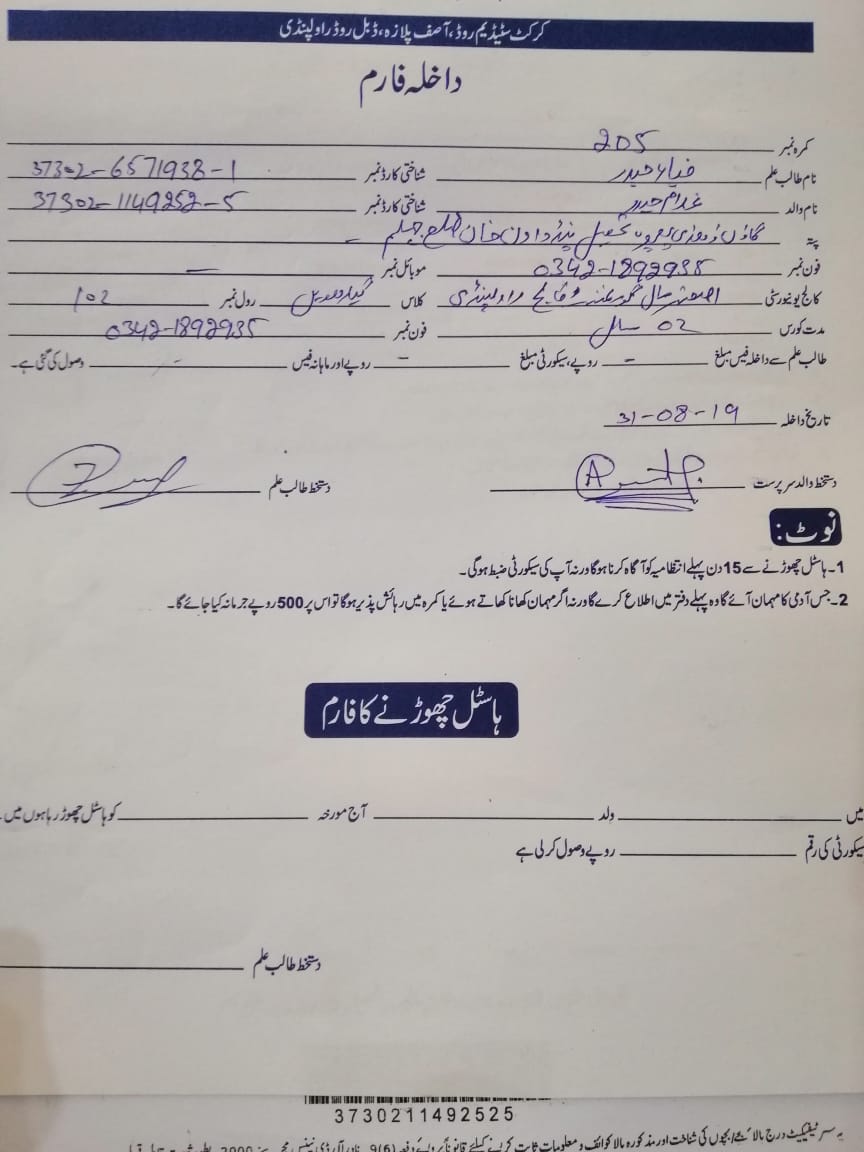 کرکٹ سٹیڈیم روڈ، آصف پلازہ، ڈبل روڈ راولپنڈی
داخلہ فارم
کمرہ نمبر 205
نام طالب علم ضیاء حیدر شناختی کارڈ نمبر 37302-6571938-1
نام والد غلام حیدر شناختی کارڈ نمبر 37302-1149252-5
پتہ گاؤں تحصیل پنڈ دادن خان ضلع جہلم
فون نمبر 0342-1892935 موبائل نمبر —
کالج یونیورسٹی اصغر مال گورنمنٹ کالج راولپنڈی کلاس گیارھویں رول نمبر 102
مدت کورس 02 سال فون نمبر 0342-1892935
طالب علم سے داخلہ فیس مبلغ - روپے، سیکورٹی مبلغ - روپے اور ماہانہ فیس - وصول کی گئی ہے۔
تاریخ داخلہ 31-08-19
دستخط والد سرپرست دستخط طالب علم
نوٹ:
1۔ ہاسٹل چھوڑنے سے 15 دن پہلے انتظامیہ کو آگاہ کرنا ہوگا ورنہ آپ کی سیکورٹی ضبط ہوگی۔
2۔ جس آدمی کا مہمان آئے گا وہ پہلے دفتر میں اطلاع کرے گا ورنہ اگر مہمان کھانا کھاتے ہوئے یا کمرہ میں رہائش پذیر ہوگا تو اس پر 500 روپے جرمانہ کیا جائے گا۔
ہاسٹل چھوڑنے کا فارم
میں ولد آج مورخہ کو ہاسٹل چھوڑ رہا ہوں میں
سیکورٹی کی رقم روپے وصول کر لی ہے
دستخط طالب علم
3730211492525
یہ سرٹیفیکیٹ درج بالا بچوں کی شناخت اور مذکورہ بالا کوائف و معلومات ثابت کرنے کیلئے قانوناً بروئے دفعہ 9(6)